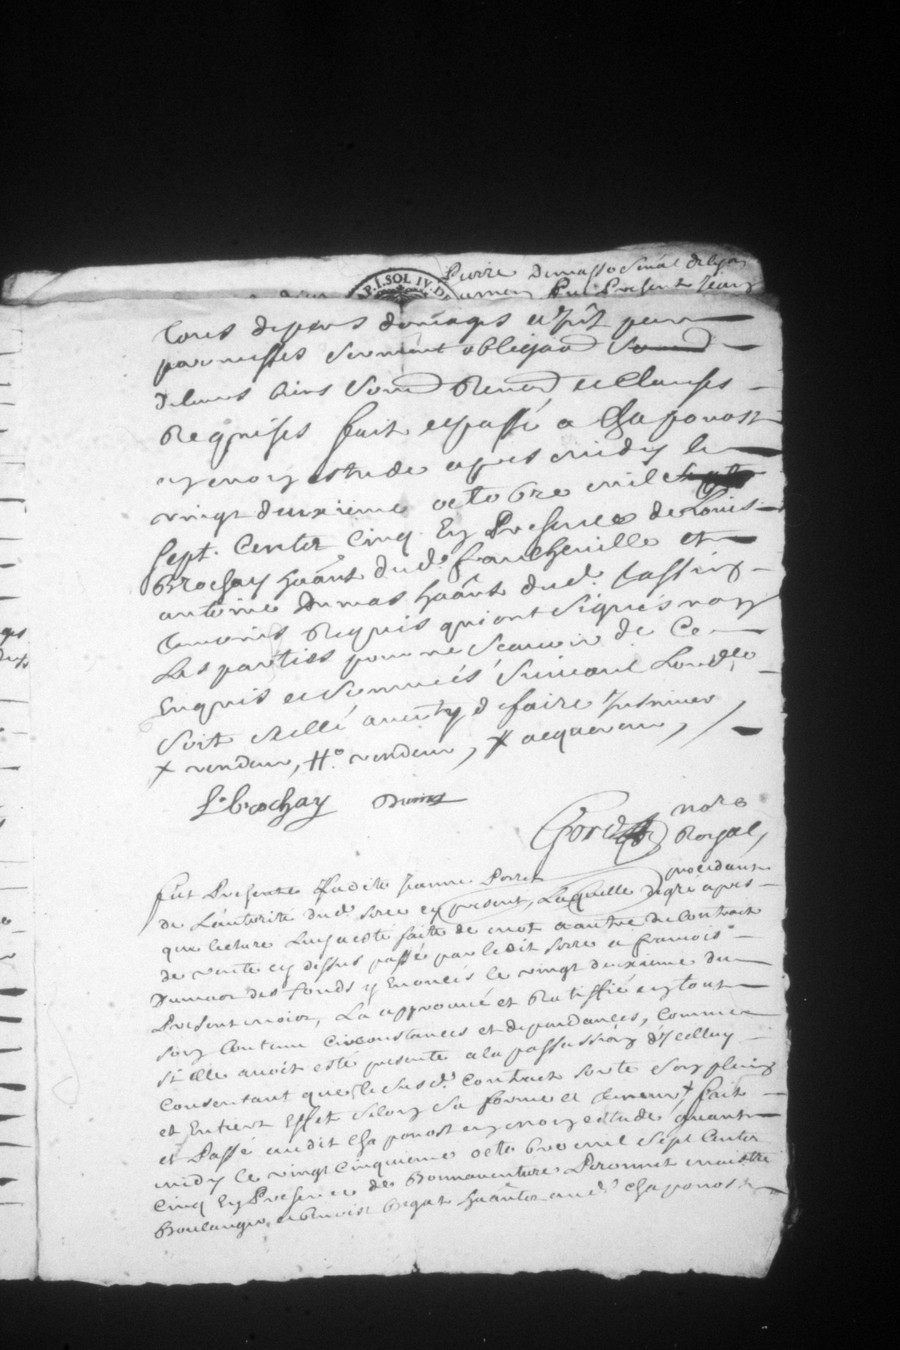 Pierre Dumas
P.I.SOL IV.DE
tous depens domages et
par
de leurs biens
Requises fait et passé a Chaponost
en mon estude apres midy le
vingt deuxieme octobre mil
sept centz cinq En presence de Louis
Brochay hãnt dud. francheville et
antoine Dumas hãnt dud. tassing
temoins Requis qui ont signés non
Les parties pour ne scavoir de Ce
Enquis et sommés suivant Lord.ce
soit scellé averty d faire Insinuer
+ vendeur, H.o vendeur, + acquereur,
L. brochay Dumas
nore
Royal,
fut Presente Ladite Jeanne procedant
de Lautorité dud. sr en present, Laquelle degre apres
que lecture Luy a esté faite de mot a autre du Contract
de vente cy dessus passé par ledit a francois
Dumas des fonds y Enoncés le vingt deuxieme du
Present mois, La approuvé et Ratiffié en tout
son Contenu Circonstances et dependances, Comme
si Elle avoit esté presente a la passassion d'Icelluy
Consentant que le susd. Contract sorte son plein
et Entier Effet selon sa forme et teneur + fait
et Passé audit Chaponost en mon estude avant
midy le vingt Cinquieme octobre mil sept Centz
Cinq En Presence de Bonnaventure Peronnet maistre
Boulanger et Benoist hãntz aud. Chaponost